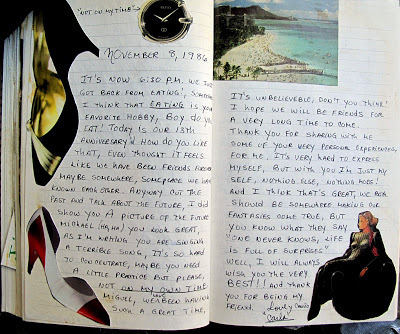 "NOT ON MY TIME"
NOVEMBER 8, 1986
IT'S NOW 6:30 P.M. WE JUST
GOT BACK FROM EATING!, SOMETIMES
I THINK THAT EATING IS YOUR
FAVORITE HOBBY, BOY DO YOU
EAT! TODAY IS OUR 13th
ANNIVERSARY'D HOW DO YOU LIKE
THAT, EVEN THOUGHT IT FEELS
LIKE WE HAVE BEEN FRIENDS FOREVER
MAYBE SOMEWHERE, SOMEPLACE WE HAVE
KNOWN EACH OTHER. ANYWAY, OUT THE
PAST AND TALK ABOUT THE FUTURE, I DID
SHOW YOU A PICTURE OF THE FUTURE
MICHAEL (HA, HA) YOU LOOK GREAT,
AS I'M WRITING YOU ARE SINGING
A TERRIBLE SONG, IT'S SO HARD
TO CONCENTRATE, MAYBE YOU NEED
A LITTLE PRACTICE BUT PLEASE,
NOT ON MY OWN TIME
MIGUEL, WE HAVE BEEN HAVING
SUCH A GREAT TIME,
IT'S UNBELIEVEBLE, DON'T YOU THINK!
I HOPE WE WILL BE FRIENDS FOR
A VERY LONG TIME TO COME.
THANK YOU FOR SHARING WITH ME
SOME OF YOUR VERY PERSONAL EXPERIENCES,
FOR ME, IT'S VERY HARD TO EXPRESS
MYSELF, BUT WITH YOU I'M JUST MY
SELF, NOTHING ELSE, NOTHING MORE!
AND I THINK THAT'S GREAT, WE BOTH
SHOULD BE SOMEWHERE MAKING OUR
FANTASIES COME TRUE, BUT
YOU KNOW WHAT THEY SAY
"ONE NEVER KNOWS, LIFE
IS FULL OF SURPRISES"
WELL, I WILL ALWAYS
WISH YOU THE VERY
BEST!!! AND THANK
YOU FOR BEING MY
FRIEND,